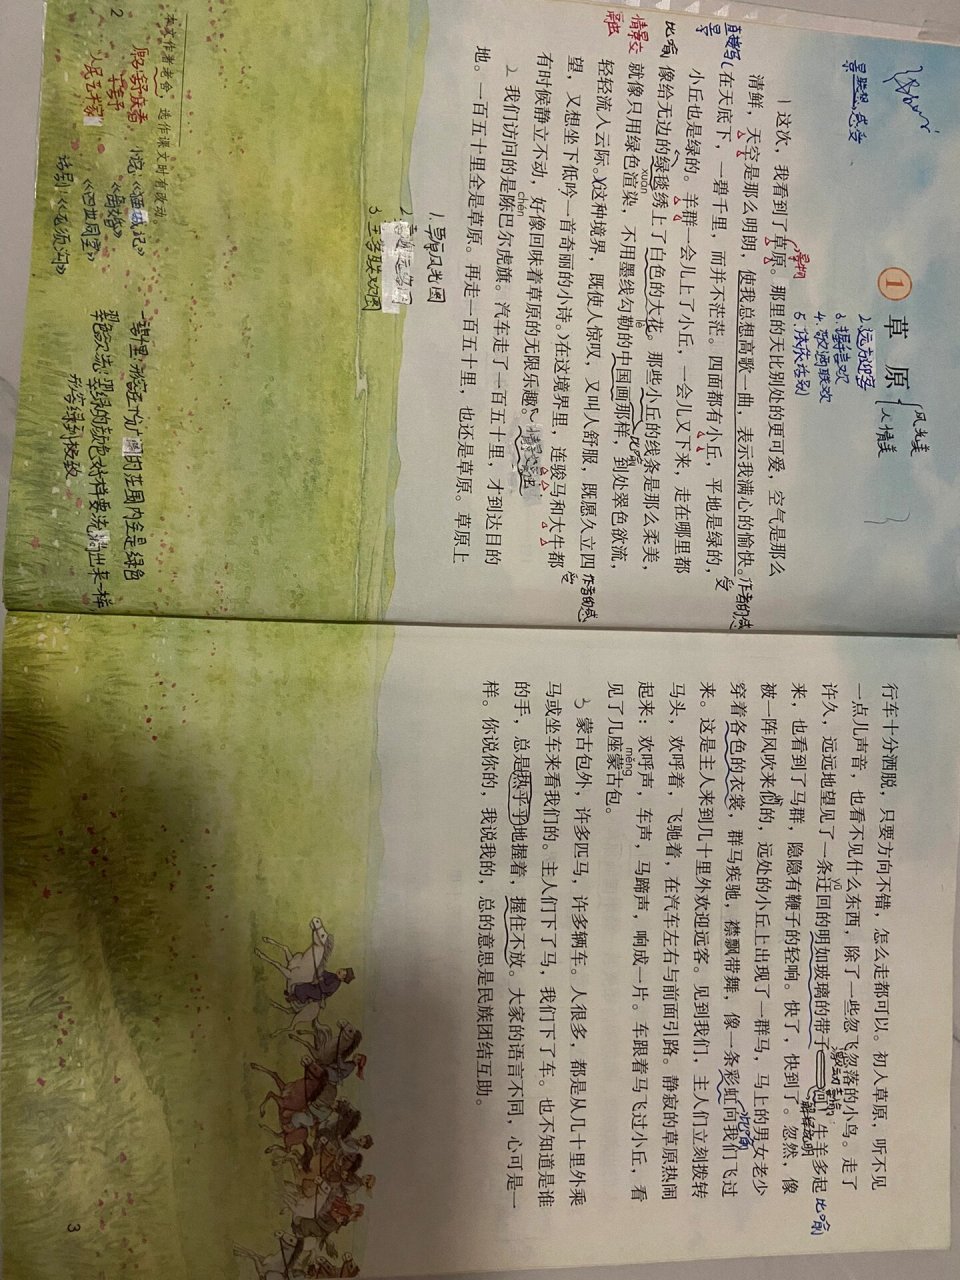 1 草原
风光美
人情美
2.远方迎客
3.握手言欢
4.歌酒联欢
5.依依话别
1 这次，我看到了草原。那里的天比别处的更可爱，空气是那么
清鲜，天空是那么明朗，使我总想高歌一曲，表示我满心的愉快。
作者的感受
在天底下，一碧千里，而并不茫茫。四面都有小丘，平地是绿的，
小丘也是绿的。羊群一会儿上了小丘，一会儿又下来，走在哪里都
比喻
像给无边的绿毯绣上了白色的大花。那些小丘的线条是那么柔美，
xuàn
lè
就像只用绿色渲染，不用墨线勾勒的中国画那样，到处翠色欲流，
比喻
轻轻流入云际。这种境界，既使人惊叹，又叫人舒服，既愿久立四
作者的感受
望，又想坐下低吟一首奇丽的小诗。在这境界里，连骏马和大牛都
有时候静立不动，好像回味着草原的无限乐趣。
chén
2 我们访问的是陈巴尔虎旗。汽车走了一百五十里，才到达目的
地。一百五十里全是草原。再走一百五十里，也还是草原。草原上
1.草原风光图
3.主客联欢图
本文作者老舍，选作课文时有改动。
原名：舒庆春
字舍予
人民艺术家
小说《猫城记》
《离婚》
《四世同堂》
话剧《龙须沟》
一碧千里：形容十分广阔的范围内全是绿色
翠色欲流：翠绿的颜色好像要流淌出来一样，
形容绿到极致
2
行车十分洒脱，只要方向不错，怎么走都可以。初入草原，听不见
一点儿声音，也看不见什么东西，除了一些忽飞忽落的小鸟。走了
yū
许久，远远地望见了一条迂回的明如玻璃的带子——河！牛羊多起
比喻
解释说明
来，也看到了马群，隐隐有鞭子的轻响。快了，快到了。忽然，像
被一阵风吹来似的，远处的小丘上出现了一群马，马上的男女老少
穿着各色的衣裳，群马疾驰，襟飘带舞，像一条彩虹向我们飞过
比喻
来。这是主人来到几十里外欢迎远客。见到我们，主人们立刻拨转
马头，欢呼着，飞驰着，在汽车左右与前面引路。静寂的草原热闹
起来：欢呼声，车声，马蹄声，响成一片。车跟着马飞过小丘，看
měng
见了几座蒙古包。
3 蒙古包外，许多匹马，许多辆车。人很多，都是从几十里外乘
马或坐车来看我们的。主人们下了马，我们下了车。也不知道是谁
的手，总是热乎乎地握着，握住不放。大家的语言不同，心可是一
样。你说你的，我说我的，总的意思是民族团结互助。
3